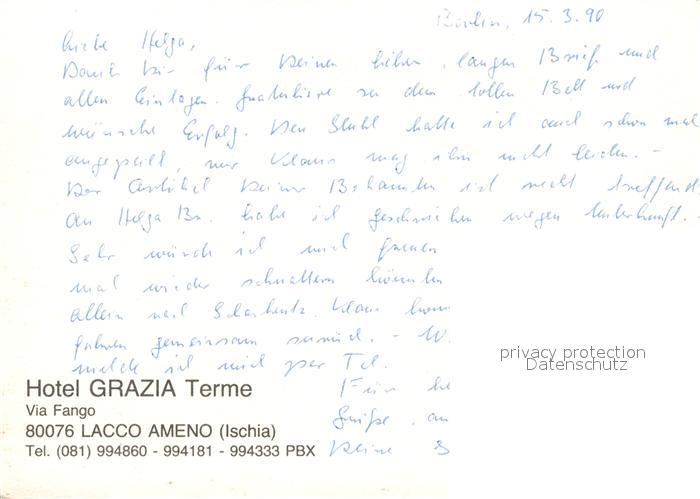 Berlin, 15.3.90
Liebe Helga,
Dank Dir für Deinen lieben, langen Brief und
allen Einlagen. Gratuliere zu dem tollen Bett und
wünsche Erfolg. Den Stuhl hatte ich auch schon mal
ausgewählt, nur Klaus mag ihn nicht leiden. -
Der Artikel Deiner Bekannten ist recht treffend
An Helga Br. habe ich geschrieben wegen Unterkunft. -
Sehr würde ich mich freuen
mal wieder schnattern könnten
allein nach Scharbeutz. Klaus
fahren gemeinsam zurück. - W.
melde ich mich per Tel.
Für
Grüße, an
Deine
privacy protection
Datenschutz
Hotel GRAZIA Terme
Via Fango
80076 LACCO AMENO (Ischia)
Tel. (081) 994860 - 994181 - 994333 PBX